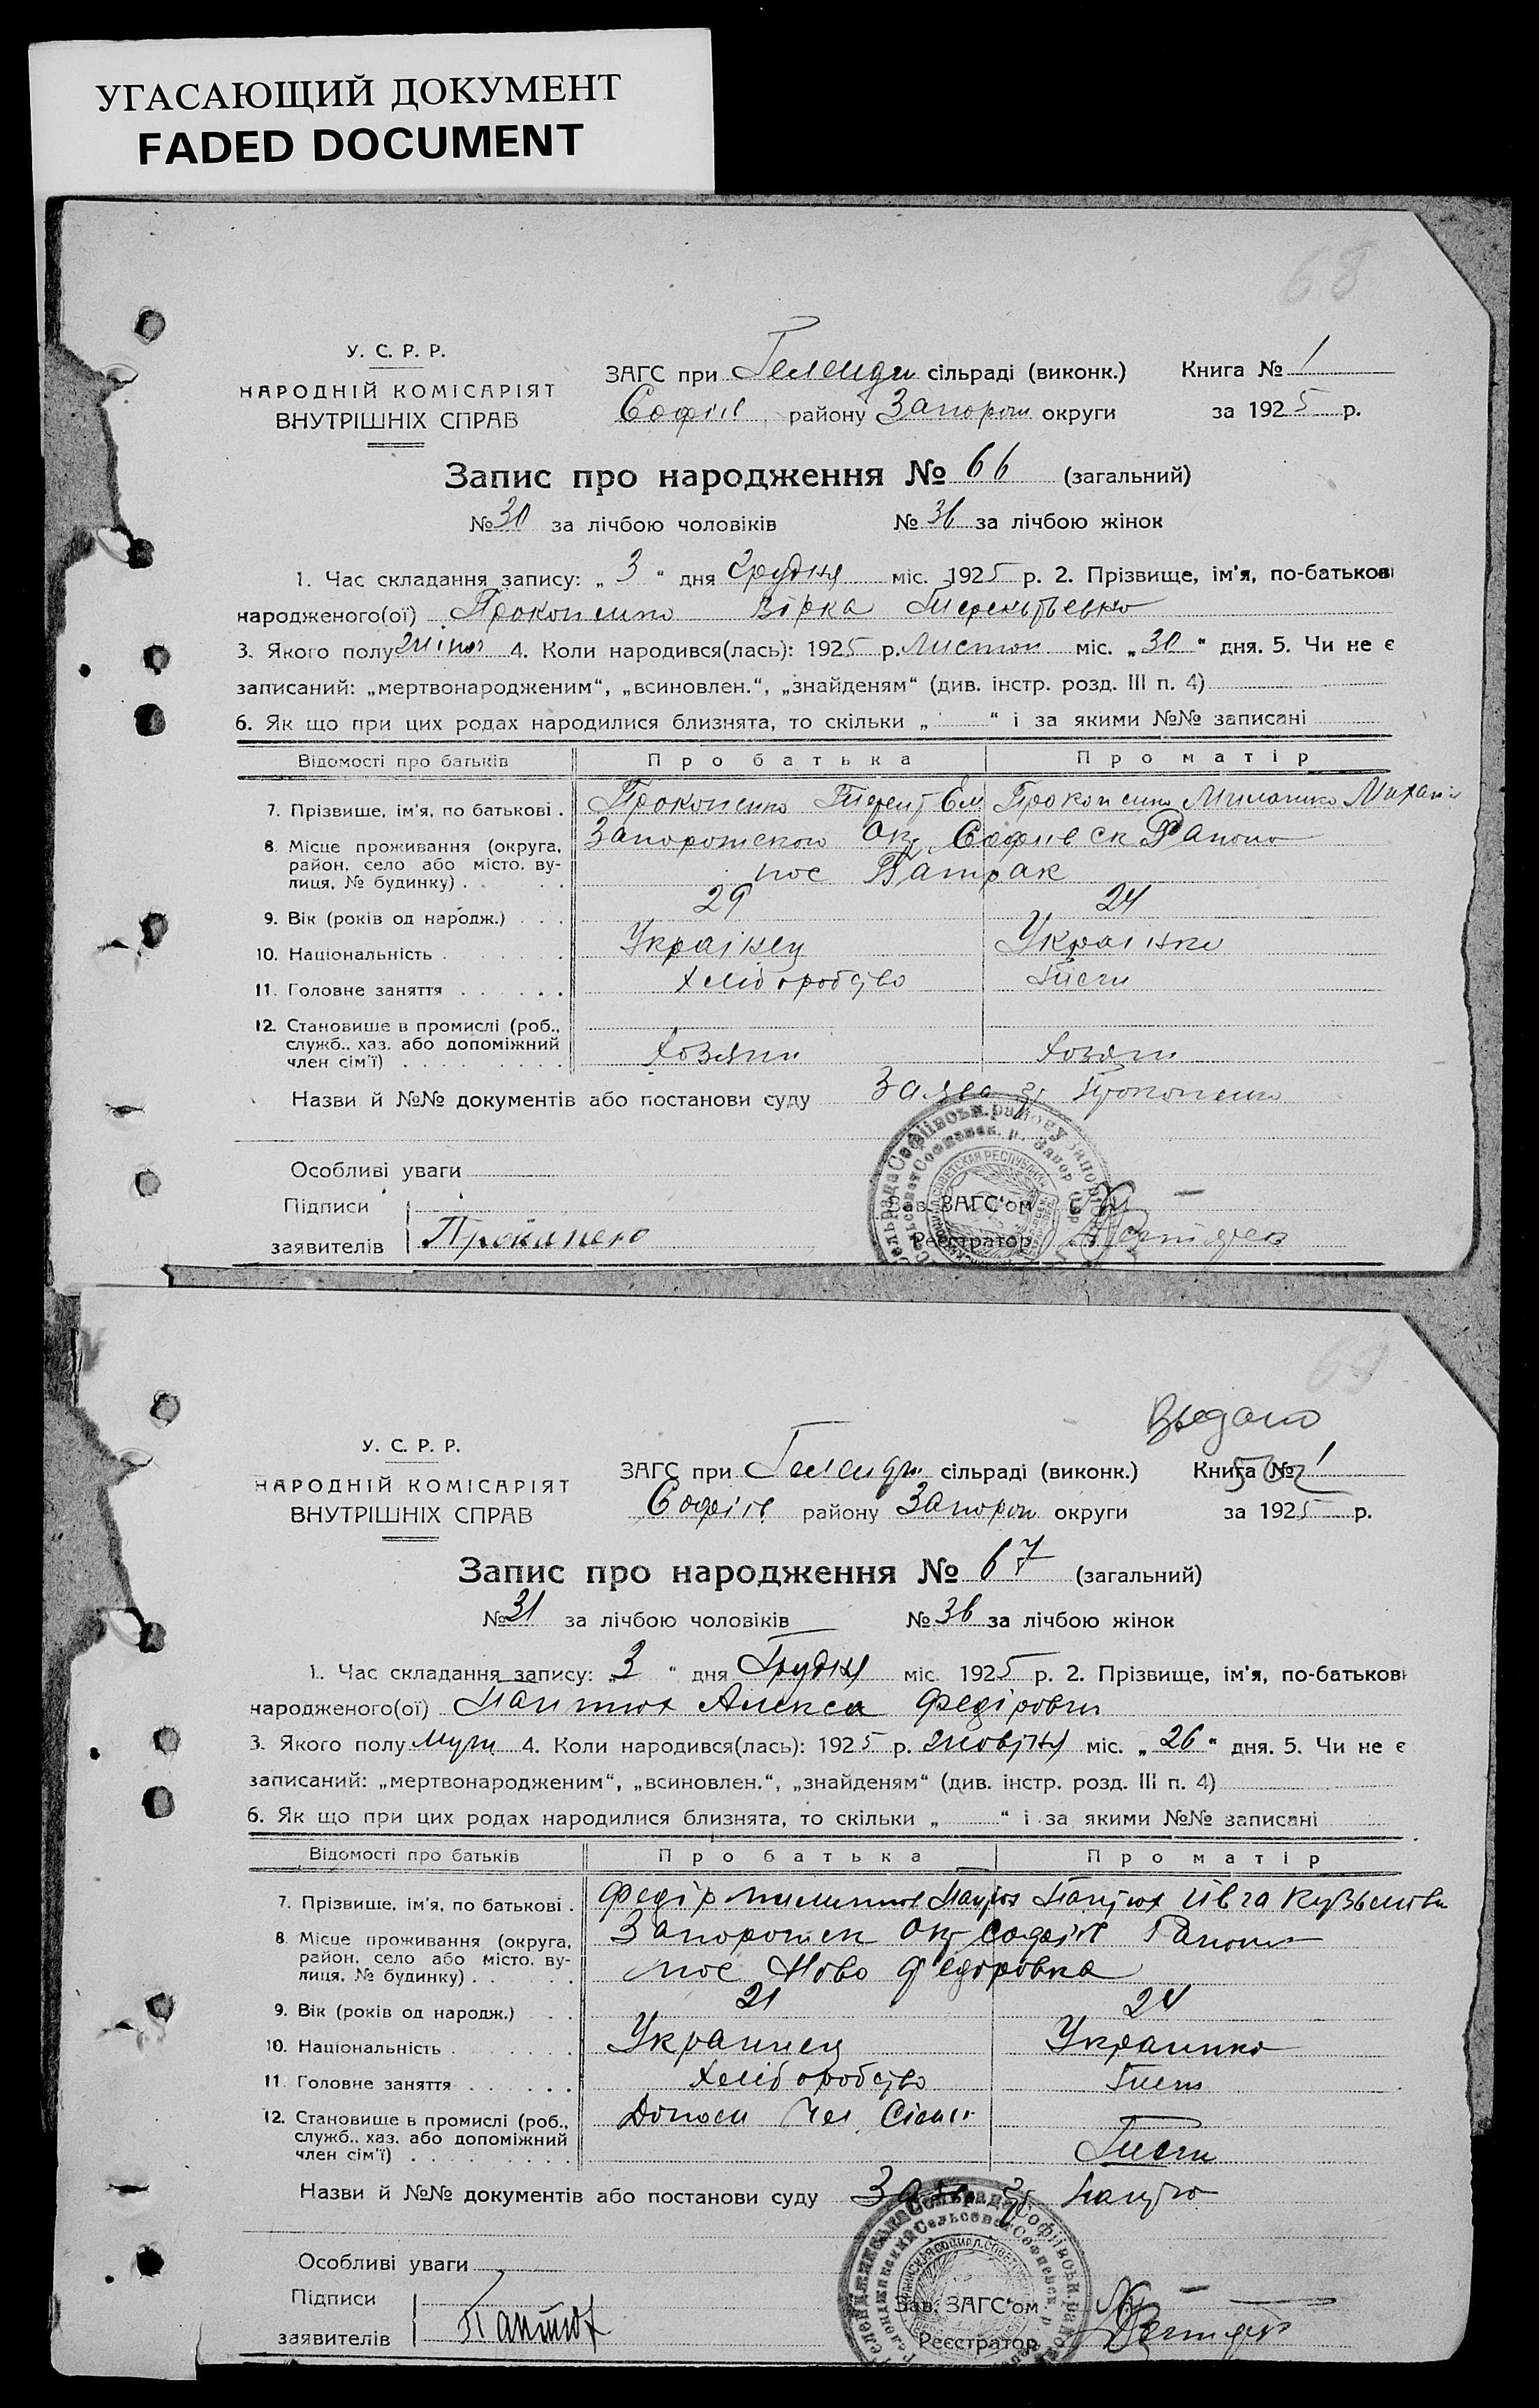 УГАСАЮЩИЙ ДОКУМЕНТ
FADED DOCUMENT
68
У. С. Р. Р.
НАРОДНІЙ КОМІСАРІЯТ
ВНУТРІШНІХ СПРАВ
ЗАГС при Геленджи сільраді (виконк.) Книга № 1
Софіїв району Запорож округи за 1925 р.
Запис про народження № 66 (загальний)
№ 30 за лічбою чоловіків № 36 за лічбою жінок
1. Час складання запису: „ 3 “ дня Грудня міс. 1925 р. 2. Прізвище, ім'я, по-батькові
народженого(ої) Прокопенко Вірка Терентьевна
3. Якого полу жіноч 4. Коли народився(лась): 1925 р. Листоп міс. „ 30 “ дня. 5. Чи не є
записаний: „мертвонародженим“, „всиновлен.“, „знайденям“ (див. інстр. розд. III п. 4)
6. Як що при цих родах народилися близнята, то скільки „ “ і за якими №№ записані
Відомості про батьків Про батька Про матір
7. Прізвище, ім'я, по батькові . Прокопенко Терент Ем Прокопенко Миланка Михаил
8. Місце проживання (округа, район, село або місто, вулиця, № будинку) . Запорожского Окр Софиевск Района
пос Батрак
9. Вік (років од народж.) . . . 29 24
10. Національність . Українец Українка
11. Головне заняття . . . . . Хліборобство Тиеж
12. Становище в промислі (роб., служб., хаз. або допоміжний член сім'ї) . . . . Хозяин Хозяи
Назви й №№ документів або постанови суду Заява гр Прокопенко
Особливі уваги
Підписи
заявителів Прокопенко
Зав. ЗАГС'ом
Реєстратор
Выдано
502
У. С. Р. Р.
НАРОДНІЙ КОМІСАРІЯТ
ВНУТРІШНІХ СПРАВ
ЗАГС при Геленджи сільраді (виконк.) Книга № 1
Софіїв району Запорож округи за 1925 р.
Запис про народження № 67 (загальний)
№ 31 за лічбою чоловіків № 36 за лічбою жінок
1. Час складання запису: „ 3 “ дня Грудня міс. 1925 р. 2. Прізвище, ім'я, по-батькові
народженого(ої) Пантюх Алекса Федірович
3. Якого полу муж 4. Коли народився(лась): 1925 р. жовтня міс. „ 26 “ дня. 5. Чи не є
записаний: „мертвонародженим“, „всиновлен.“, „знайденям“ (див. інстр. розд. III п. 4)
6. Як що при цих родах народилися близнята, то скільки „ “ і за якими №№ записані
Відомості про батьків Про батька Про матір
7. Прізвище, ім'я, по батькові . Федір Пантюх Пантюх Івга Кузьмовна
8. Місце проживання (округа, район, село або місто, вулиця, № будинку) . Запорожск Окр Софіїв Района
пос Ново Федоровка
9. Вік (років од народж.) . . . 21 24
10. Національність . Украинец Украинка
11. Головне заняття . . . . . Хліборобство Тиеж
12. Становище в промислі (роб., служб., хаз. або допоміжний член сім'ї) . . . . Допом Чел Сімьи Тиеж
Назви й №№ документів або постанови суду Заява гр Пантю
Особливі уваги
Підписи
заявителів Пантюх
Зав. ЗАГС'ом
Реєстратор